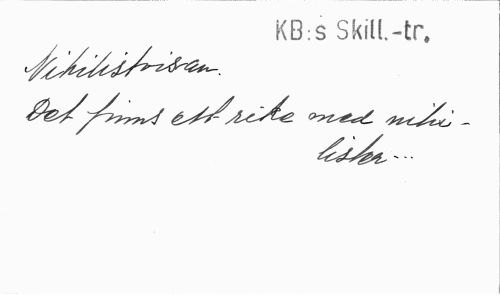 KB:s Skill.-tr.
Nihilistvisan.
Det finns ett rike med nihi-
lister...